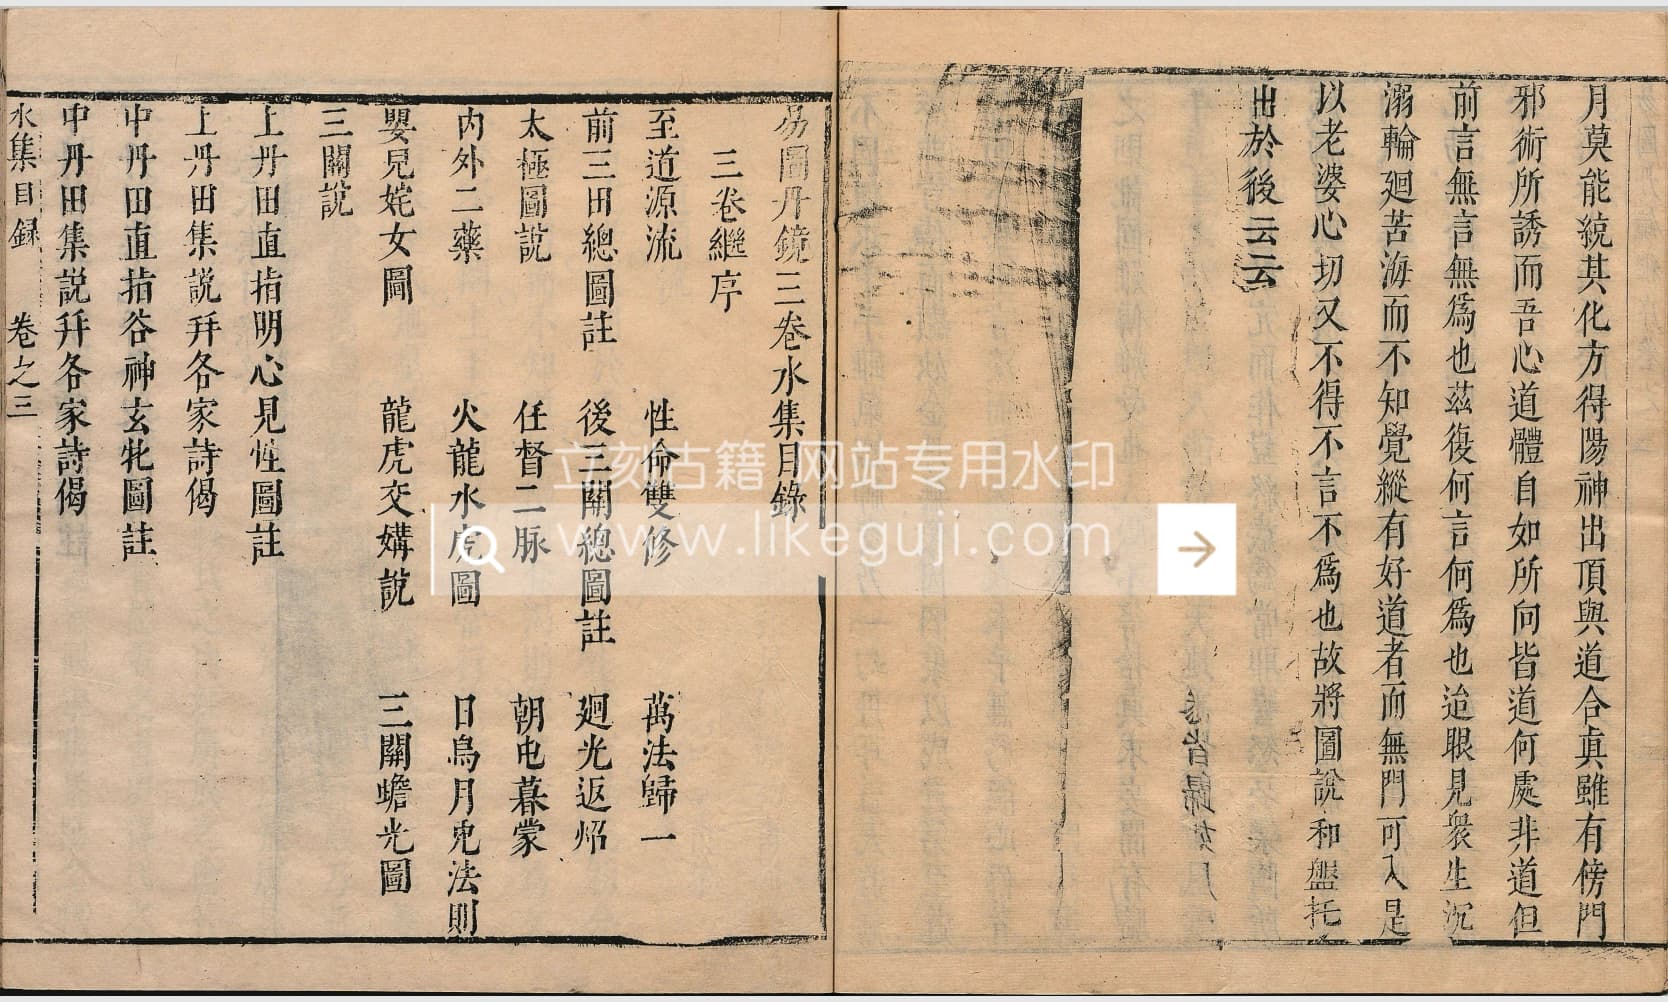 月莫能統其化方得陽神出頂與道合眞雖有傍門
邪術所誘而吾心道體自如所向皆道何處非道但
前言無言無爲也茲復何言何爲也迨眼見衆生沉
溺輪廻苦海而不知覺縱有好道者而無門可入是
以老婆心切又不得不言不爲也故將圖說和盤托
出於後云云
易圖丹鏡三卷水集目錄
三卷繼序
至道源流 性命雙修 萬法歸一
前三田總圖註 後三關總圖註 廻光返炤
太極圖說 任督二脉 朝屯暮蒙
內外二藥 火龍水虎圖 日烏月兎法則
嬰兒姹女圖 龍虎交媾說 三關蟾光圖
三關說
上丹田直指明心見性圖註
上丹田集說幷各家詩偈
中丹田直指谷神玄牝圖註
中丹田集説幷各家詩偈
水集目録 卷之三
立刻古籍 网站专用水印
www.likeguji.com